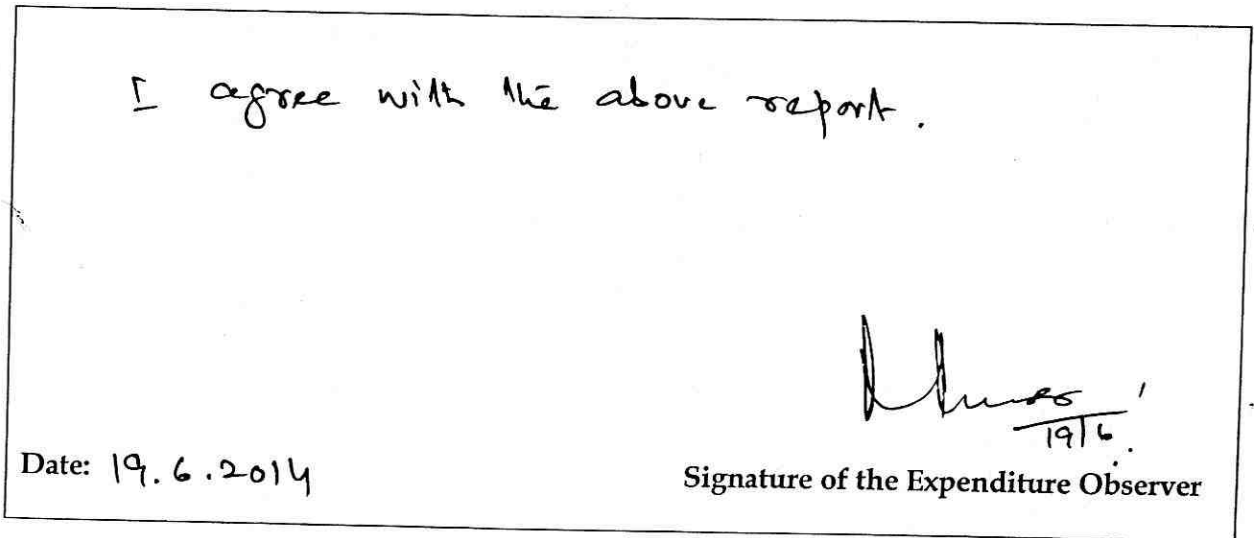 I agree with the above report.
19/6
Date: 19.6.2014
Signature of the Expenditure Observer